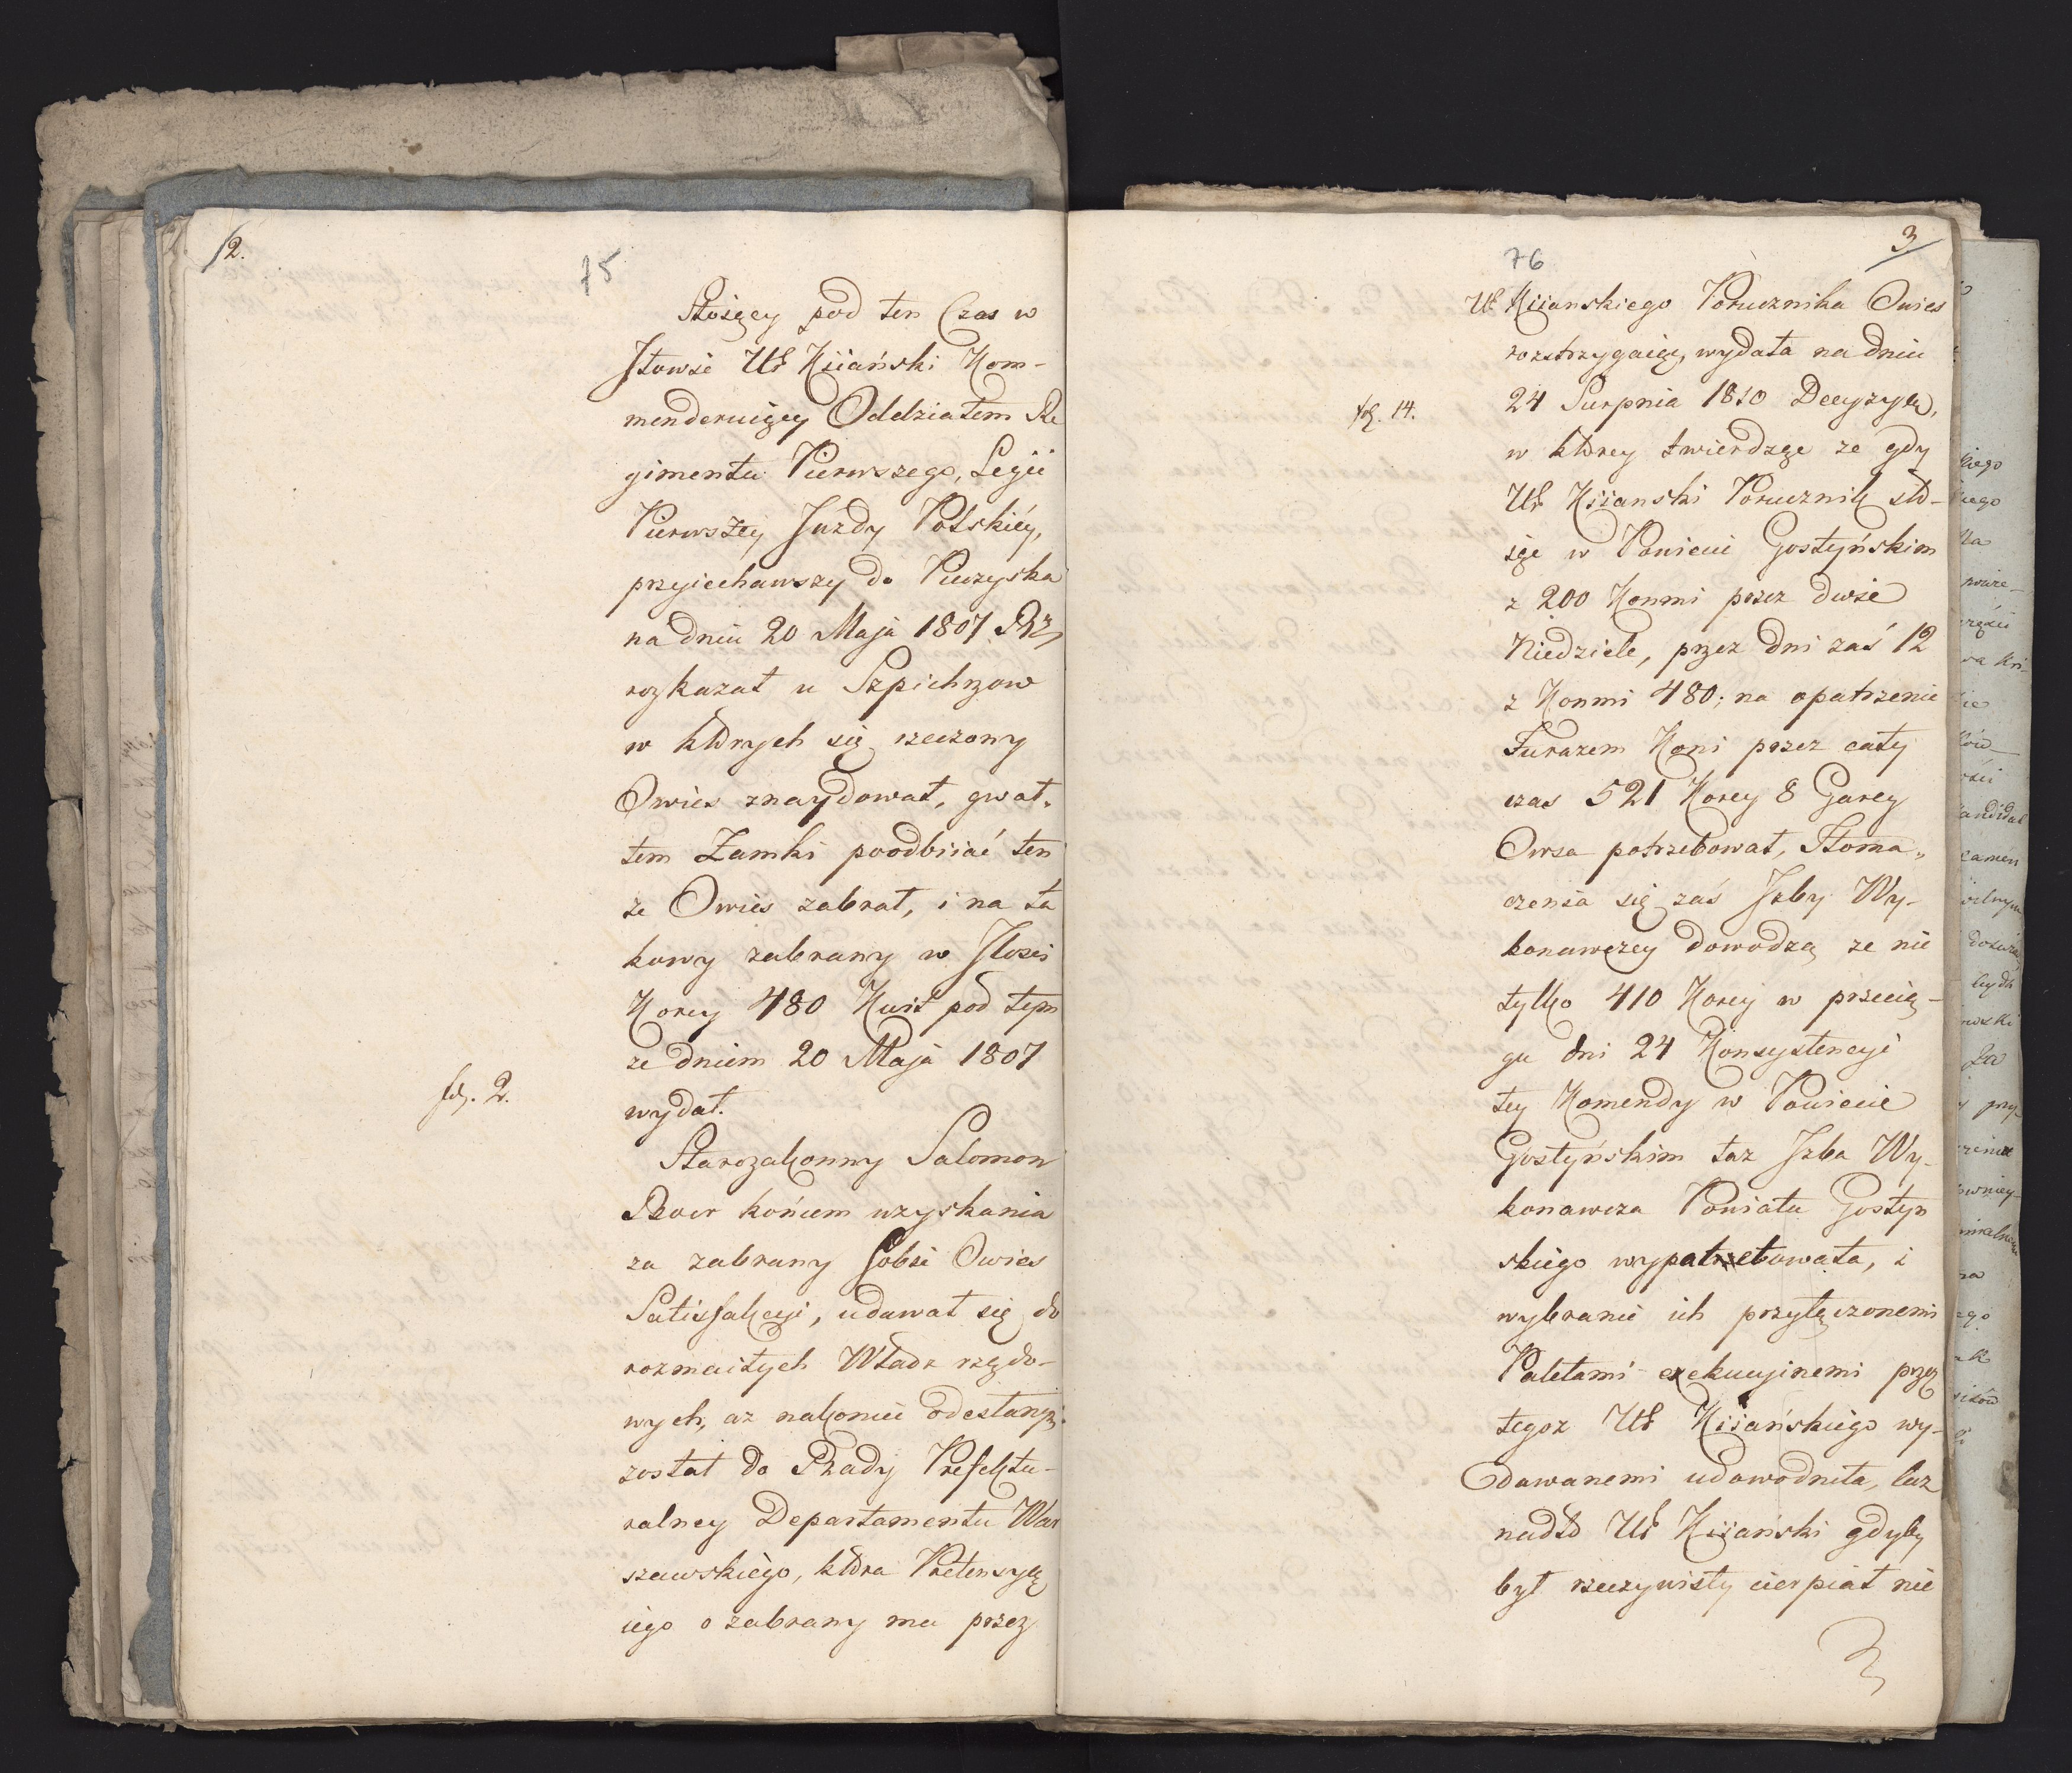 2.
75
Stoiący pod ten Czas w
Iłowie Ur Kiiański Kom-
menderuiący Oddziałem Re
gimentu Pierwszego, Legii
Pierwszey Jazdy Polskiéy,
przyiechawszy do Kiczyska
na dniu 20 Maja 1807 R
rozkazał u Szpichrzow
w których się rzeczony
Owies znaydował, gwał-
tem Zamki poodbiiać ten
że Owies zabrał, i na ta
kowy zabrany w Ilości
Korcy 480 Kwit pod tym
że dniem 20 Maja 1807
wydał.
fol. 2.
Starozakonny Salomon
Posner końcem uzyskania
za zabrany sobie Owies
Satisfakcyi, udawał się do
rozmaitych Władz rządo-
wych, aż nakoniec odesłany
został do Rady Prefektu-
ralney Departamentu War
szawskiégo, która Pretensyą
iego o zabrany mu przez
3
76
Ur Kiianskiego Porucznika Owies
rozstrzygaiąc, wydała na dniu
24 Sierpnia 1810 Decyzyią,
fol. 14.
w którey twierdząc ze gdy
Ur Kiianski Porucznik sto-
iąc w Powiecie Gostyńskim
z 200 Konmi przez dwie
Niedziele, przez dni zaś 12
z Konmi 480; na opatrzenie
Furazem Koni przez cały
czas 521 Korcy 8 Garcy
Owsa potrzebował, Tłoma-
czenia się zaś Izby Wy-
konawczey dowodzą ze nie
tylko 410 Korcy w przecią-
gu dni 24 Konsystencyi
tey Komendy w Powiecie
Gostyńskim taz Izba Wy-
konawcza Powiatu Gostyn
skiego wypotrzebowała, i
wybranie ich przyłączonemi
Paletami exekucyinemi przez
tegoz Ur Kiiańskiego wy-
dawanemi udowodniła, lecz
nadto Ur Kiiański gdyby
był rzeczywisty cierpiał nie